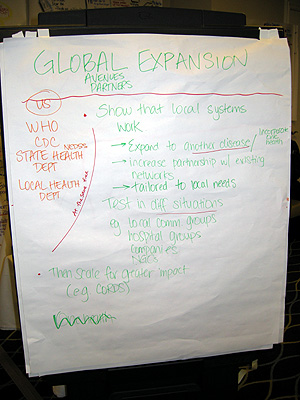 GLOBAL EXPANSION
AVENUES
PARTNERS
US
WHO
CDC
STATE HEALTH
DEPT
LOCAL HEALTH
DEPT
NEDSS
At the same time
• Show that local systems
work
→ Expand to another disease/
Incorporate
chc
health
→ increase partnership w/ existing
networks
→ tailored to local needs
Test in diff situations
eg local comm groups
hospital groups
companies
NGOs
• Then scale for greater impact
(e.g. CORDS)